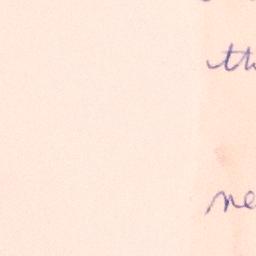 th
ne